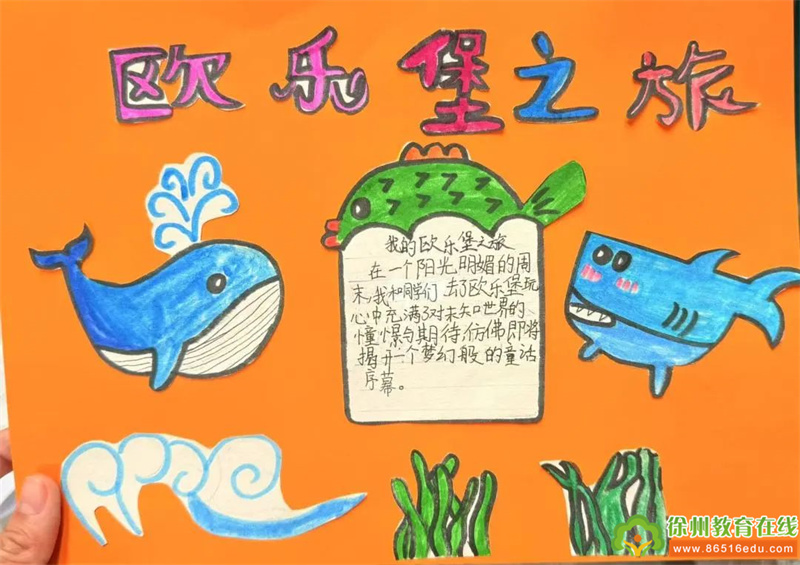 欧乐堡之旅
我的欧乐堡之旅
在一个阳光明媚的周
末,我和同学们去了欧乐堡玩
心中充满了对未知世界的
憧憬与期待,仿佛即将
揭开一个梦幻般的童话
序幕。
徐州教育在线
www.86516edu.com